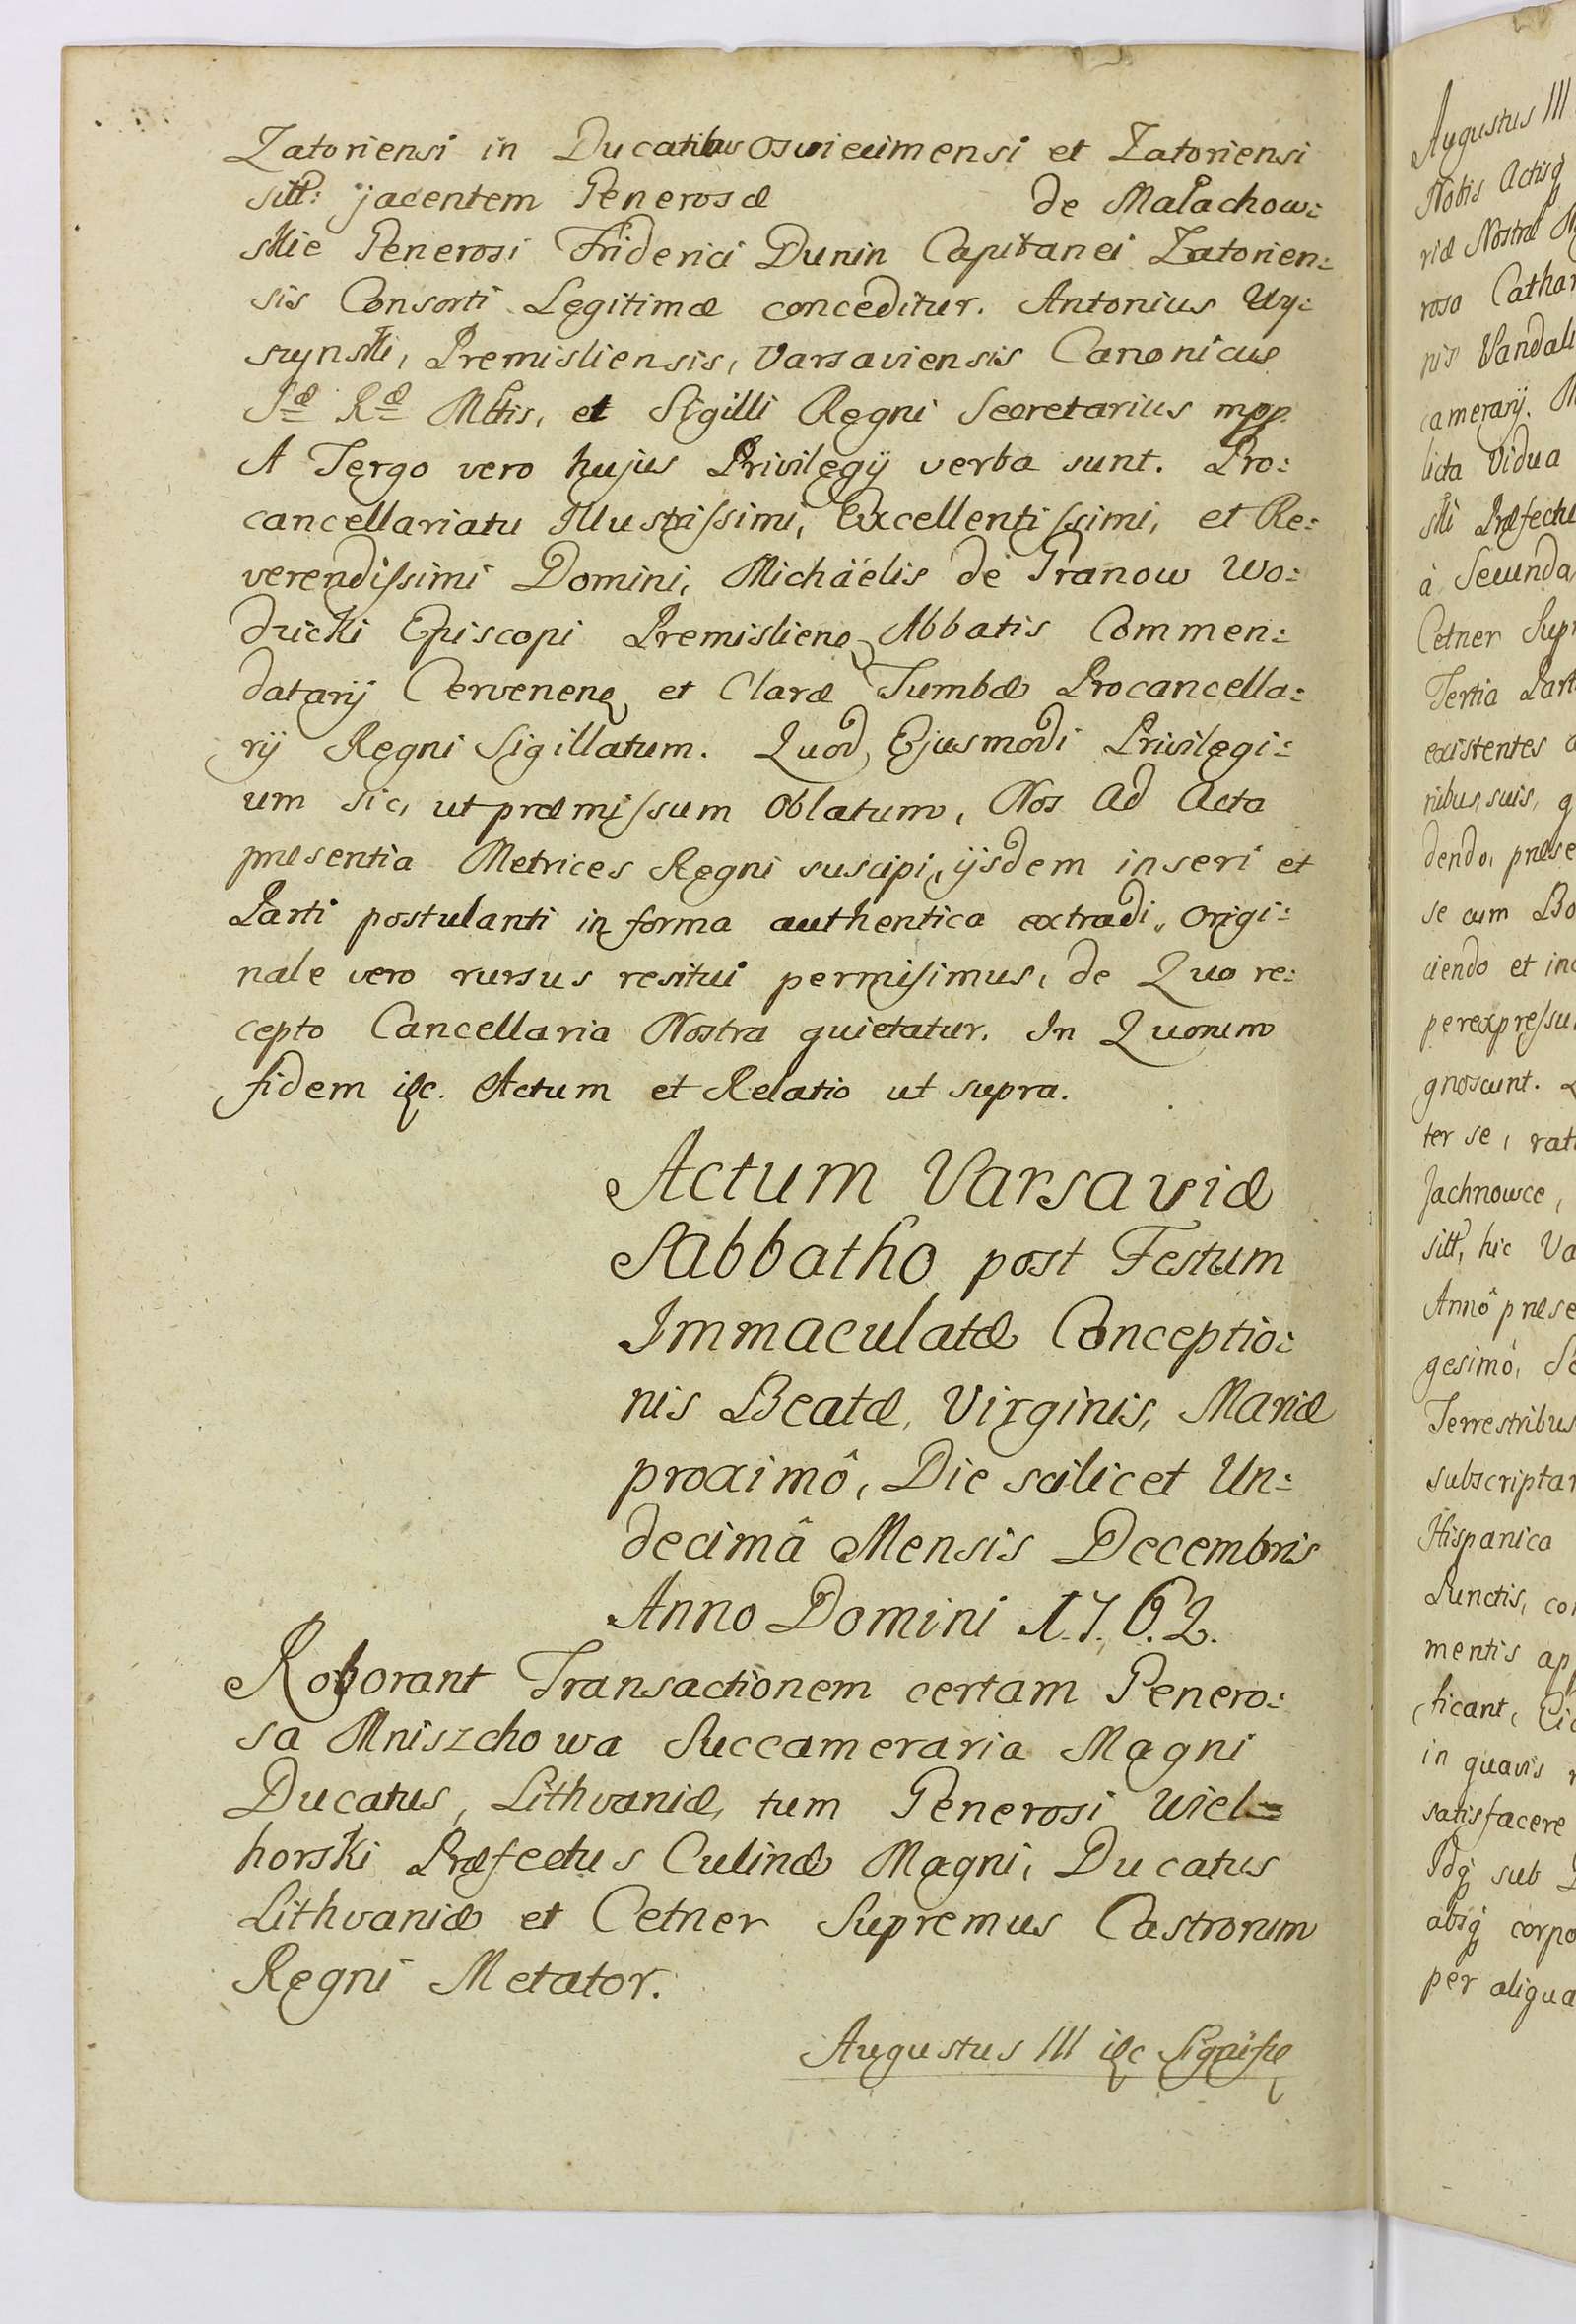 Zatoriensi in Ducatibus Oswiecimensi et Zatoriensi
sitt: jacentem Generosæ de Małachow:
skie Generosi Friderici Dunin Capitanei Zatorien:
sis Consorti Legitimæ conceditur. Antonius Wy:
szynski, Premisliensis, Varsaviensis Canonicus
Sæ Ræ Mttis, et Sigilli Regni Secretarius mpp.
A Tergo vero hujus Privilegij verba sunt. Pro:
cancellariatu Illustrissimi, Excellentissimi, et Re:
verendissimi Domini, Michäelis de Granow Wo:
dzicki Episcopi Premislienq Abbatis Commen:
datarij Cervenenq et Claræ Tumbæ Procancella:
rij Regni Sigillatum. Quod, Ejusmodi Privilegi:
um sic, ut præmissum Oblatum, Nos ad Acta
præsentia Metrices Regni suscipi, ijsdem inseri et
Parti postulanti in forma authentica extradi, Origi:
nale vero rursus resitui permisimus, de Quo re:
cepto Cancellaria Nostra quietatur. In Quorum
fidem &c. Actum et Relatio ut supra.
Actum Varsaviæ
Sabbatho post Festum
Immaculatæ Conceptio:
nis Beatæ, Virginis, Mariæ
proximô, Die scilicet Un:
decimâ Mensis Decembris
Anno Domini 1.7.6.2.
Roborant Transactionem certam Genero:
sa Mniszchowa Succameraria Magni
Ducatus, Lithvaniæ, tum Generosi Wiel=
horski Præfectus Culinæ Magni, Ducatus
Lithvaniæ et Cetner Supremus Castrorum
Regni Metator.
Augustus III &c Signifiq
Augustus III
Nobis Actisq
riæ Nostræ
rosa Cathar
nis Vandali
camerarij.
licta Vidua
ski Præfectu
à Secunda
Cetner Supr
Tertia Part
existentes
ribus, suis, q
dendo, præse
se cum Bo
ciendo et in
per expressu
gnoscunt.
ter se, rat
Jachnowce,
sitt, hic Va
Annô præse
gesimô, Se
Terrestribus
subscriptar
Hispanica
Punctis, con
mentis ap
ficant,
in quavis
satisfacere
Idq sub
absq corpo
per aliqua